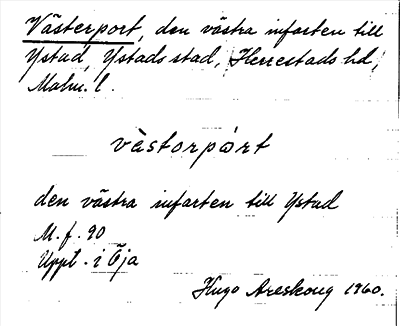 Västerport, den västra infarten till
Ystad, Ystads stad, Herrestads hd,
Malm. l.
västorpὠrt
den västra infarten till Ystad
M. f. 90
Uppt. i Öja
Hugo Areskoug 1960.